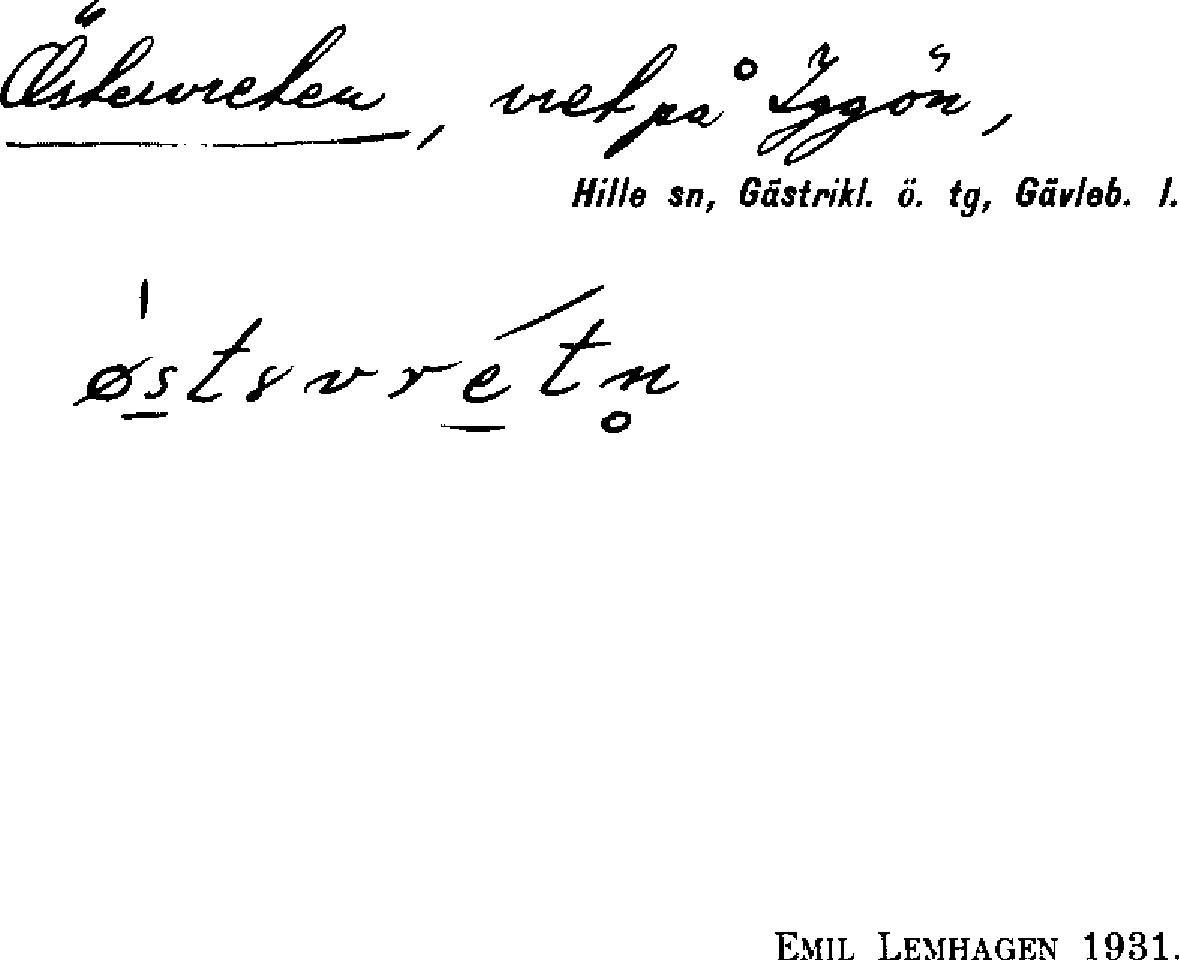 Östervreten, vret på Iggön,
Hille sn, Gästrikl. ö. tg, Gävleb. l.
østsvretn̥
EMIL LEMHAGEN 1931.